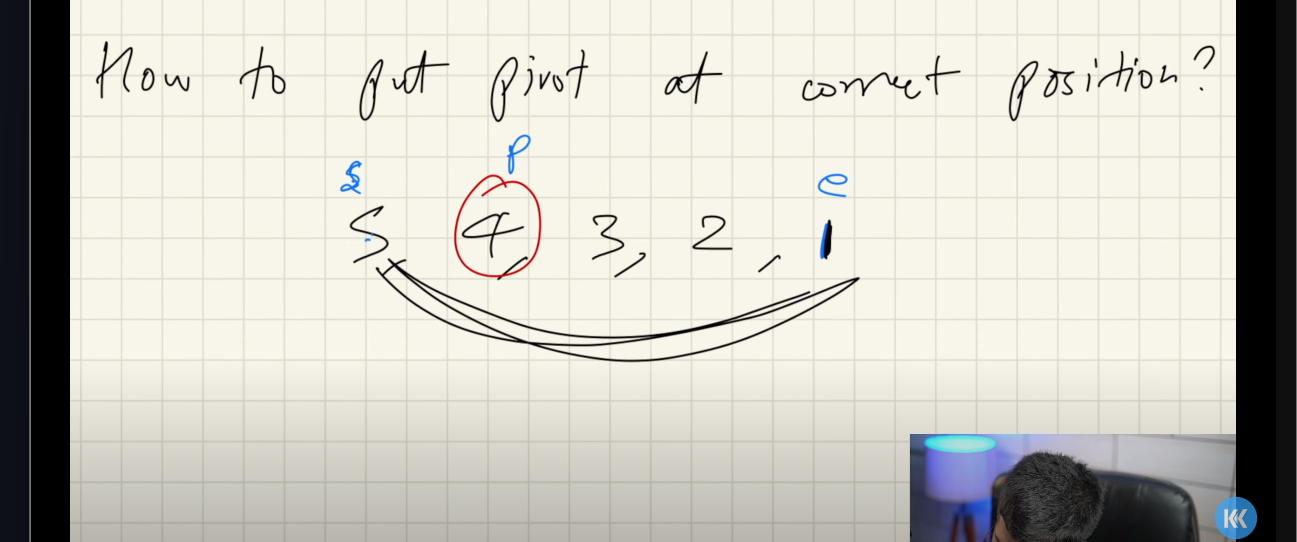 How to put pivot at correct position?
s p e
5, 4, 3, 2, 1
K